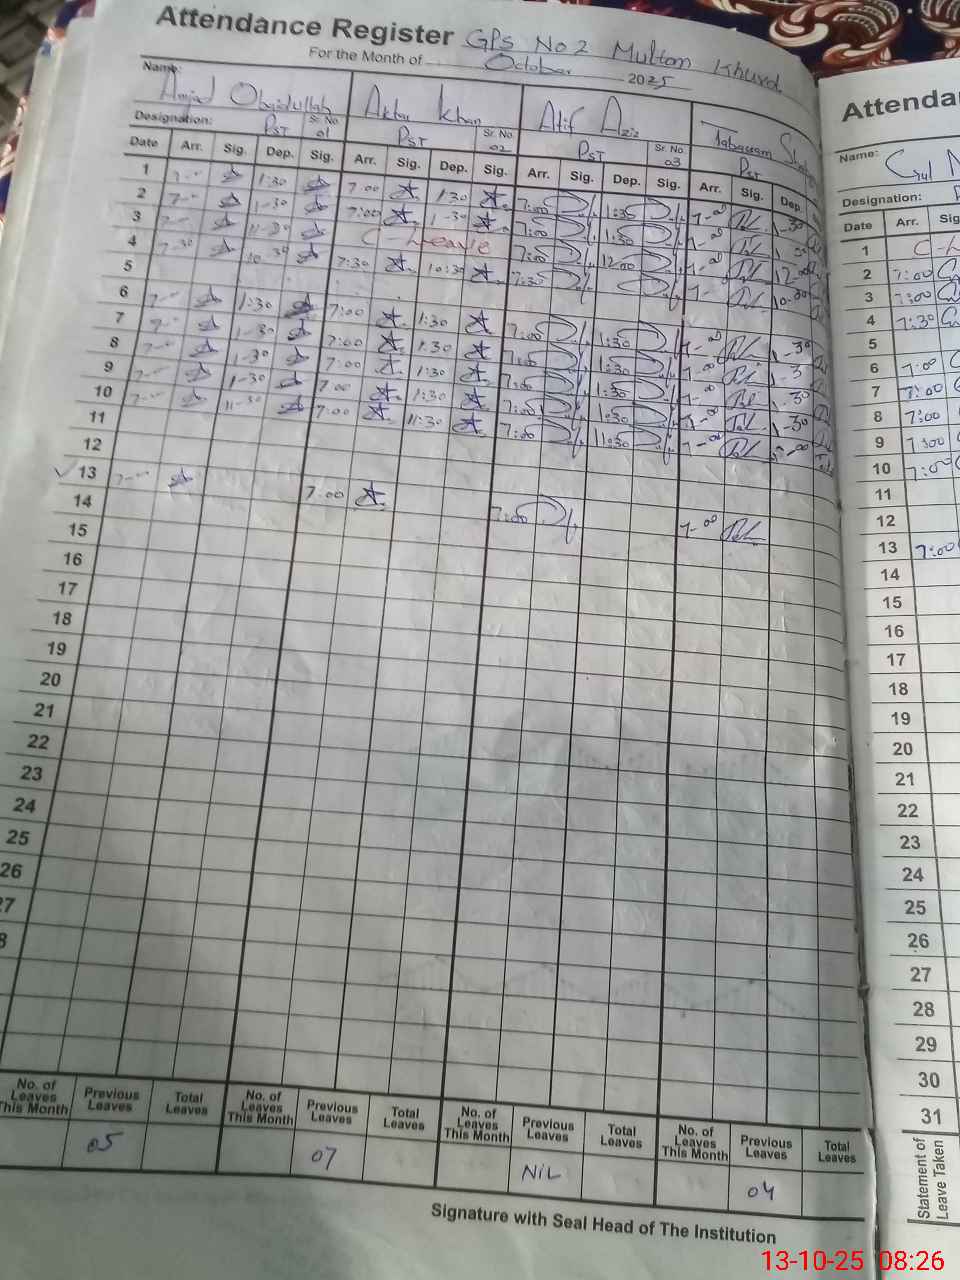 Attendance Register GPS No 2 Multan Khurd
For the Month of October 2025
Name: Amjad Obaidullah Akhtar Khan Atif Aziz Tabassum
Designation: PST Sr. No 01 PST Sr. No 02 PST Sr. No 03 PST
Date Arr. Sig. Dep. Sig. Arr. Sig. Dep. Sig. Arr. Sig. Dep. Sig. Arr. Sig. Dep.
1 7-00 1:30 7:00 1:30 7:00 1:30 7-00 1-30
2 7-00 1-30 7:00 1-30 7:00 1:30 7-00 1-30
3 7-00 11-30 C-Leave 7:00 12:00 7-00 12-00
4 7-30 10-30 7:30 10:30 7:30 7- 10-30
5
6 7-00 1:30 7:00 1:30 7:00 1:30 7-00 1-30
7 7-00 1-30 7:00 1:30 7:00 1:30 7-00 1-30
8 7-00 1-30 7:00 1:30 7:00 1:30 7-00 1-30
9 7-00 1-30 7:00 1:30 7:00 1:30 7-00 1-30
10 7-00 11-30 7:00 11:30 7:00 11:30 7-00
11
12
13 7-00 7:00 7:00 7-00
14
15
16
17
18
19
20
21
22
23
24
25
26
27
8
No. of Leaves This Month Previous Leaves Total Leaves No. of Leaves This Month Previous Leaves Total Leaves No. of Leaves This Month Previous Leaves Total Leaves No. of Leaves This Month Previous Leaves Total Leaves
05 07 NIL 04
Signature with Seal Head of The Institution
Attenda
Name: Gul
Designation:
Date Arr. Sig
1 C-
2 7:00
3 7:00
4 7:30
5
6 7:00
7 7:00
8 7:00
9 7:00
10 7:00
11
12
13 7:00
14
15
16
17
18
19
20
21
22
23
24
25
26
27
28
29
30
31
Statement of
Leave Taken
13-10-25 08:26